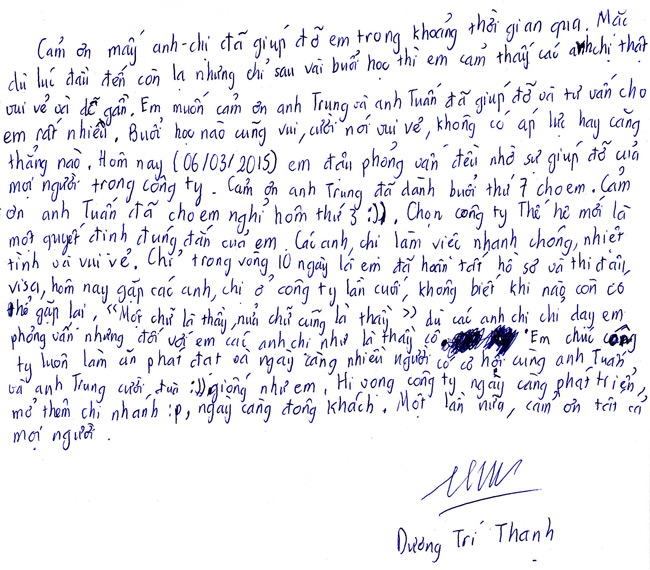 Cảm ơn mấy anh-chị đã giúp đỡ em trong khoảng thời gian qua. Mặc
dù lúc đầu đến còn lạ nhưng chỉ sau vài buổi học thì em cảm thấy các anh chị thật
vui vẻ và dễ gần. Em muốn cảm ơn anh Trung và anh Tuấn đã giúp đỡ và tư vấn cho
em rất nhiều. Buổi học nào cũng vui, cười nói vui vẻ, không có áp lực hay căng
thẳng nào. Hôm nay (06/03/2015) em đậu phỏng vấn đều nhờ sự giúp đỡ của
mọi người trong công ty. Cảm ơn anh Trung đã dành buổi thứ 7 cho em. Cảm
ơn anh Tuấn đã cho em nghỉ hôm thứ 3 :)). Chọn công ty Thế hệ mới là
một quyết định đúng đắn của em. Các anh, chị làm việc nhanh chóng, nhiệt
tình và vui vẻ. Chỉ trong vòng 10 ngày là em đã hoàn tất hồ sơ và thi đậu
visa, hôm nay gặp các anh, chị ở công ty lần cuối, không biết khi nào còn có
thể gặp lại. "Một chữ là thầy, nửa chữ cũng là thầy" dù các anh chị chỉ dạy em
phỏng vấn nhưng đối với em các anh chị như là thầy cô. Em chúc công
ty luôn làm ăn phát đạt và ngày càng nhiều người có cơ hội cùng anh Tuấn
và anh Trung cười đùa :)) giống như em. Hi vọng công ty ngày càng phát triển,
mở thêm chi nhánh :p, ngày càng đông khách. Một lần nữa, cảm ơn tất cả
mọi người.
Dương Trí Thanh